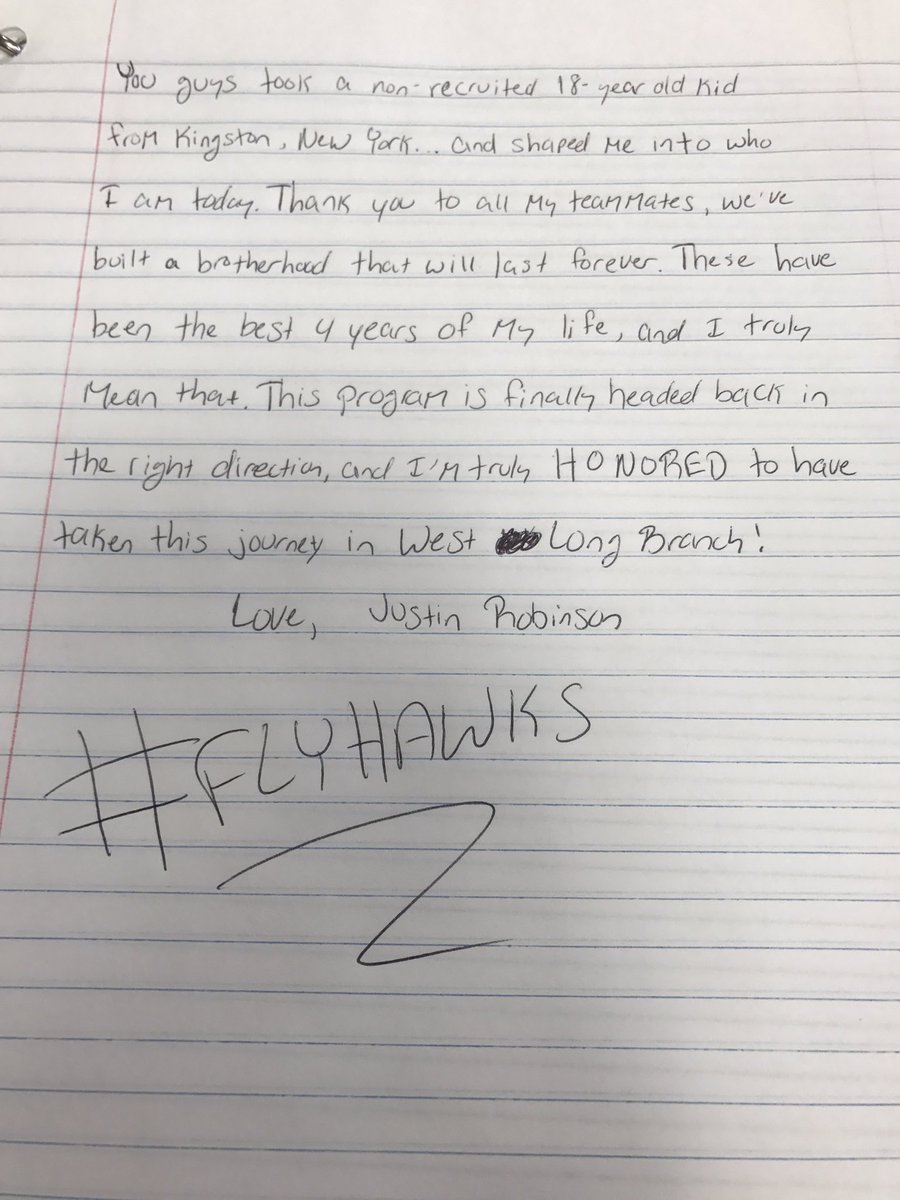 You guys took a non-recruited 18-year old kid
from Kingston, New York... and shaped me into who
I am today. Thank you to all my teammates, we've
built a brotherhood that will last forever. These have
been the best 4 years of my life, and I truly
mean that. This program is finally headed back in
the right direction, and I'm truly HONORED to have
taken this journey in West Long Branch!
Love, Justin Robinson
#FLYHAWKS